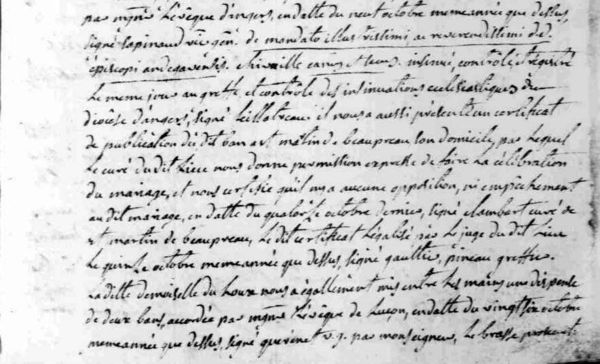 par mgnr. L'évêque d'angers, en datte du neuf octobre meme année que dessus,
signé lapinaud vic. gén. de mandato illustrissimi ac reverendissimi d.d.
épiscopi andegavensis. insinué, controlé et registré
Le meme jour au greffe et controle des insinuations ecclesiastiques du
diocèse d'angers, signé il nous a aussi présenté un certificat
de publication du dit ban a st martin de beaupreau son domicile, par lequel
Le curé du dit Lieu nous donne permission expresse de faire La célébration
du mariage, et nous certifie qu'il n'y a aucune opposition, ni empechement
au dit mariage, en datte du quatorse octobre dernier, signé clambart curé de
st martin de beaupreau, Le dit certificat légalisé par Le juge du dit Lieu
Le quinse octobre meme année que dessus, signé gaultier, pineau greffier.
La ditte demoiselle du houx nous a également mis entre Les mains une dispense
de deux bans, accordée par mgnr L'évêque de Luçon, en datte du vingt six octobre
meme année que dessus, signé v.g. par monseigneur,